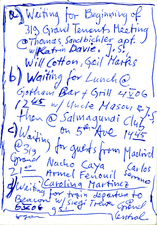 a) Waiting for Beginning of
319 Grand Tenants Meeting
@ Thomas Sandbichler apt.
w/ Katrin Davis, J.S.
Will Cotton, Geil Marks
b) Waiting for Lunch @
Gotham Bar + Grill 4 V 06
12 45 w/ Uncle Mason
Then @ Salmagundi Club
c) on 5th Ave 4 45
Waiting for guests from Madrid
@ 319 Grand
21 Nacho Caya Carlos
Arnel Ferens
Carolina Martinez
d) Waiting for train departure to
Beacon w/
6 V 06 Grand